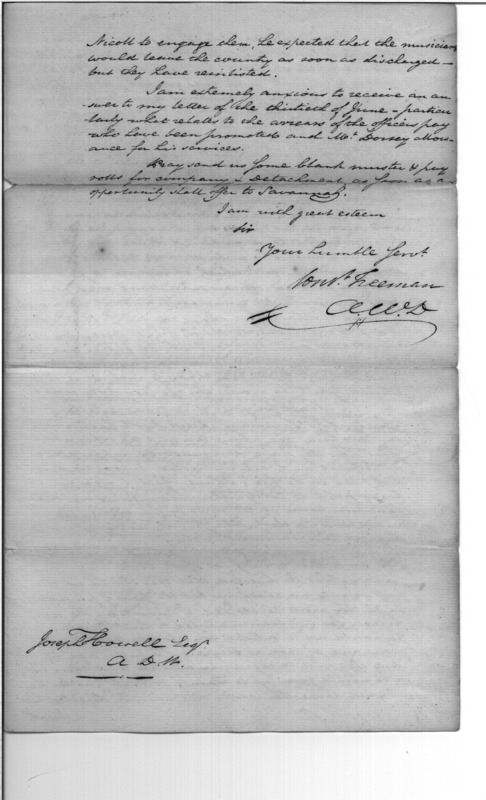 Nicoll to engage them, he expected that the musicians
would leave the county as soon as discharged –
but they have reinlisted.
I am extremely anxious to receive an an
swer to my letter of the thirtieth of June – particu
larly what relates to the arrears of the officers pay
who have been promoted and Mr. Dorsey allow-
ance for his services.
Pray send us some blank muster & pay
rolls for company & Detachment, as soon as an
opportunity shall offer to Savannah.
I am with great esteem
Sir
Your humble Servt.
Const. Freeman
A.W.D
Joseph Howell Esqr.
A D W.